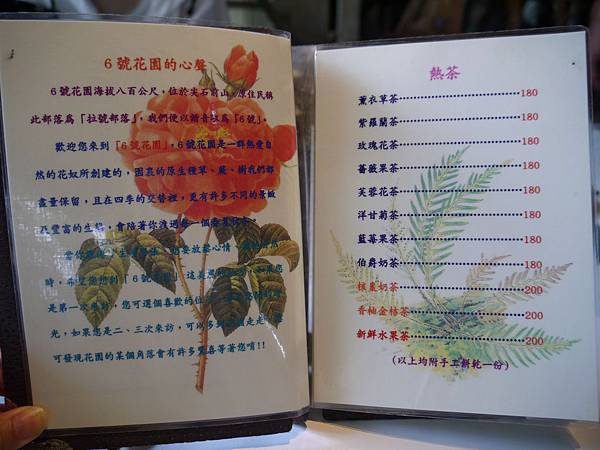 6號花園的心聲
6號花園海拔八百公尺，位於尖石前山，原住民稱
此部落為「拉號部落」，我們便以諧音喊為「6號」。
歡迎您來到「6號花園」，6號花園是一群熱愛自
然的花奴所創建的，園裏的原生種草、蕨、樹我們都
盡量保留，且在四季的交替裡，更有許多不同的景緻
及豐富的生態，會陪著你渡過每一個
時，希望您想到「6號花園」這
是第一次來訪，您可選個喜歡的位
光，如果您是二、三次來訪，可以多 走走
可發現花園的某個角落會有許多驚喜等著您唷!!
熱茶
薰衣草茶 180
紫羅蘭茶 180
玫瑰花茶 180
薔薇果茶 180
芙蓉花茶 180
洋甘菊茶 180
藍莓果茶 180
伯爵奶茶 180
核棗奶茶 180
香柚金桔茶 200
新鮮水果茶 200
(以上均附手工餅乾一份)